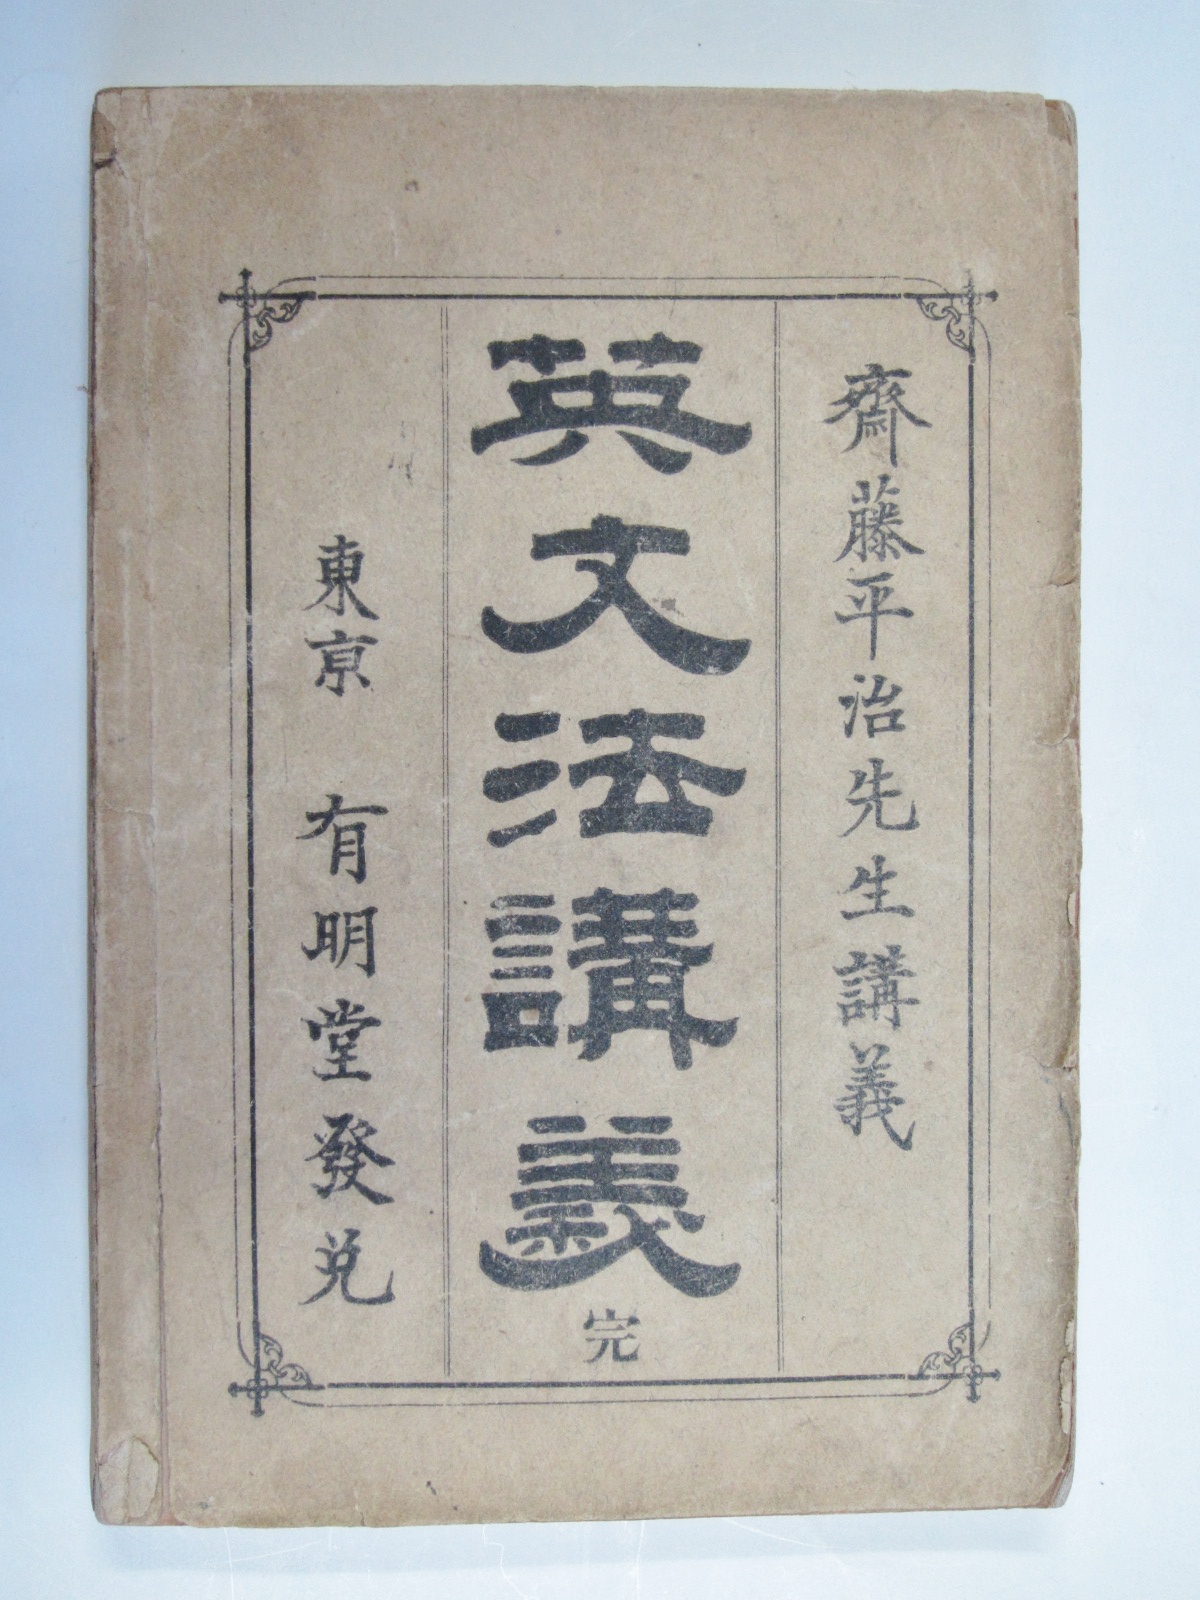 齋藤平治先生講義
英文法講義 完
東京 有明堂發兌